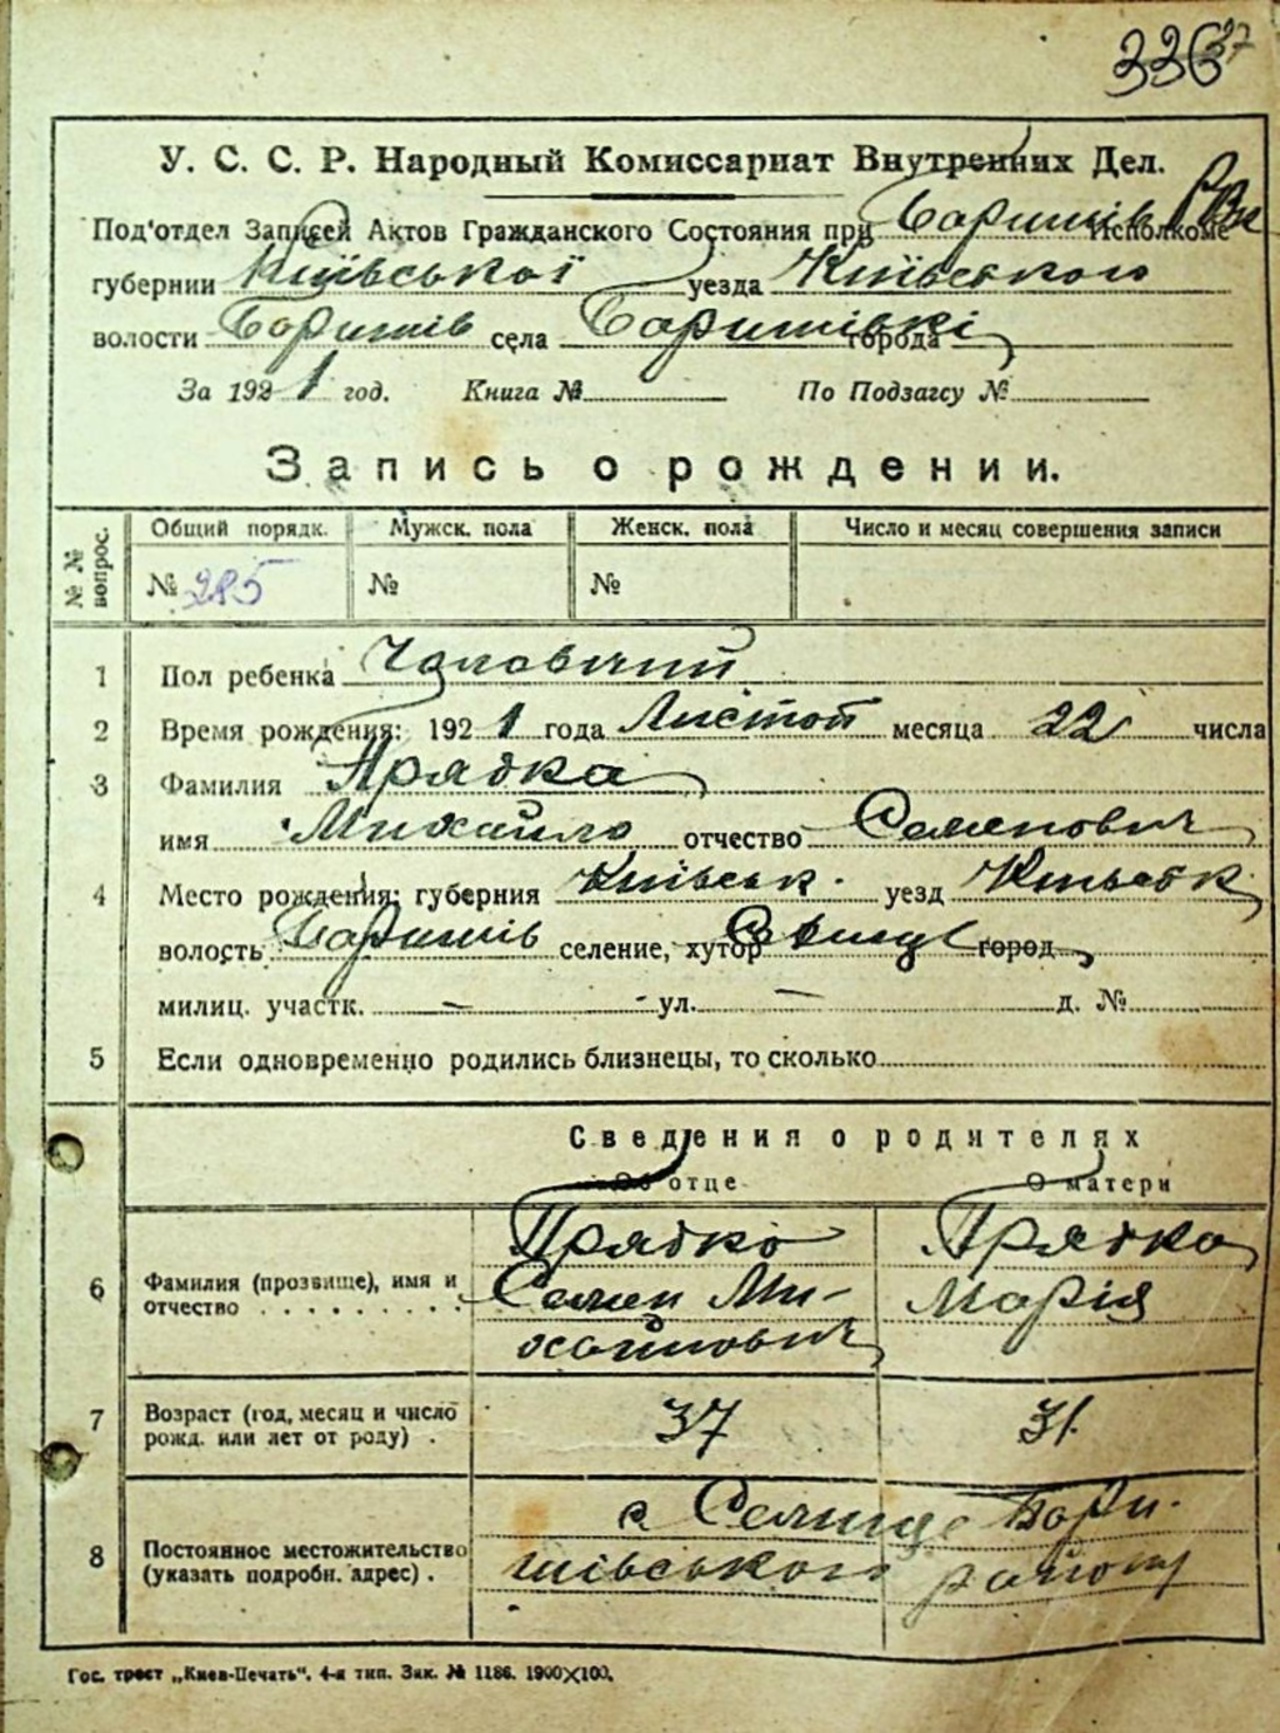 336 37
У. С. С. Р. Народный Комиссариат Внутренних Дел.
Под'отдел Записей Актов Гражданского Состояния при Баришів РВК Исполкоме
губернии Київської уезда Київского
волости Баришів села Баришівкі города
За 1921 год. Книга № По Подзагсу №
Запись о рождении.
№ № вопрос. Общий порядк. Мужск. пола Женск. пола Число и месяц совершения записи
№ 285 № №
1 Пол ребенка Чоловічий
2 Время рождения: 1921 года Листоп месяца 22 числа
3 Фамилия Прядка
имя Михайло отчество Семенович
4 Место рождения: губерния Київськ. уезд Київськ.
волость Баришів селение, хутор город
милиц. участк. – ул. – д. №
5 Если одновременно родились близнецы, то сколько
Сведения о родителях
Об отце О матери
6 Фамилия (прозвище), имя и отчество . . . . . . . . . Прядко Семен Михайлович Прядка Марія
7 Возраст (год, месяц и число рожд. или лет от роду) . 37 31
8 Постоянное местожительство (указать подробн. адрес) . с Селище Баришівського району
Гос. трест „Киев-Печать“. 4-я тип. Зак. № 1186. 1900×100.